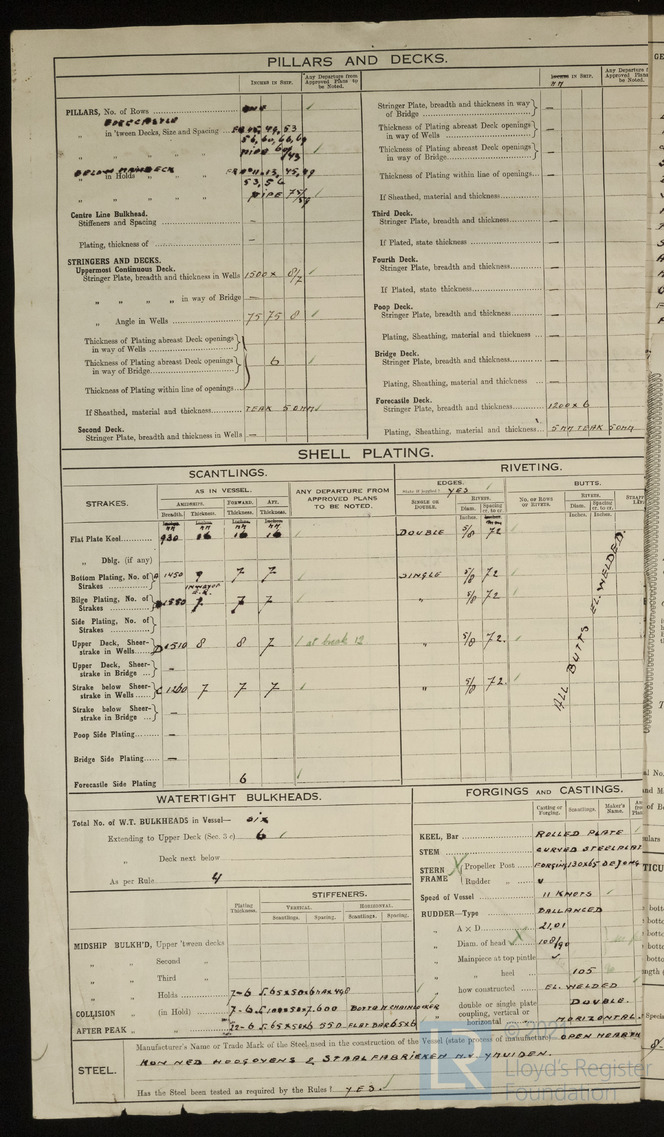 PILLARS AND DECKS.
INCHES IN SHIP.
Any Departure from Approved Plans to be Noted.
PILLARS, No. of Rows
FORECASTLE
„ in 'tween Decks, Size and Spacing
49, 53
56, 60, 66, 69
PIPE
BELOW MAINDECK
„ in Holds „ „
45, 49
53, 56
PIPE 75/59
Centre Line Bulkhead.
Stiffeners and Spacing –
Plating, thickness of –
STRINGERS AND DECKS.
Uppermost Continuous Deck.
Stringer Plate, breadth and thickness in Wells 1500 x 8/7
„ „ „ „ in way of Bridge —
„ Angle in Wells 75 75 8
Thickness of Plating abreast Deck openings in way of Wells
Thickness of Plating abreast Deck openings in way of Bridge 6
Thickness of Plating within line of openings
If Sheathed, material and thickness TEAK 50MM
Second Deck.
Stringer Plate, breadth and thickness in Wells —
INCHES IN SHIP.
MM
Stringer Plate, breadth and thickness in way of Bridge —
Thickness of Plating abreast Deck openings in way of Wells —
Thickness of Plating abreast Deck openings in way of Bridge —
Thickness of Plating within line of openings —
If Sheathed, material and thickness —
Third Deck.
Stringer Plate, breadth and thickness —
If Plated, state thickness —
Fourth Deck.
Stringer Plate, breadth and thickness —
If Plated, state thickness —
Poop Deck.
Stringer Plate, breadth and thickness —
Plating, Sheathing, material and thickness —
Bridge Deck.
Stringer Plate, breadth and thickness —
Plating, Sheathing, material and thickness —
Forecastle Deck.
Stringer Plate, breadth and thickness 1200 x 6
Plating, Sheathing, material and thickness 5MM TEAK 50MM
SHELL PLATING.
SCANTLINGS.
RIVETING.
STRAKES.
AS IN VESSEL.
ANY DEPARTURE FROM APPROVED PLANS TO BE NOTED.
EDGES.
YES
BUTTS.
AMIDSHIPS. FORWARD. AFT.
Breadth. Thickness. Thickness. Thickness.
SINGLE OR DOUBLE.
RIVERS.
Diam. Spacing cr. to cr.
No. OF ROWS OF RIVETS.
RIVETS.
Diam. Spacing cr. to cr.
Flat Plate Keel 930 16 16 16 DOUBLE 5/8 72
„ Dblg. (if any)
Bottom Plating, No. of Strakes 1450 7 7 SINGLE 5/8 72
Bilge Plating, No. of Strakes 1550 7 7 7 „ 5/8 72
Side Plating, No. of Strakes
Upper Deck, Sheerstrake in Wells D 1510 8 8 7 at book 12 „ 5/8 72.
Upper Deck, Sheerstrake in Bridge –
Strake below Sheerstrake in Wells C 1260 7 7 7 „ 5/8 72.
Strake below Sheerstrake in Bridge —
Poop Side Plating —
Bridge Side Plating —
Forecastle Side Plating 6
ALL BUTTS EL. WELDED.
WATERTIGHT BULKHEADS.
Total No. of W.T. BULKHEADS in Vessel— six
Extending to Upper Deck (Sec. 3 c) 6
„ Deck next below
As per Rule 4
Plating Thickness.
STIFFENERS.
VERTICAL. HORIZONTAL.
Scantlings. Spacing. Scantlings. Spacing.
MIDSHIP BULKH'D, Upper 'tween decks
„ „ Second „
„ „ Third „
„ „ Holds
COLLISION „ (in Hold) 7-6
AFTER PEAK „ „ 65x50x6 550 FLAT BAR 65x6
FORGINGS AND CASTINGS.
Casting or Forging. Scantlings. Maker's Name.
KEEL, Bar ROLLED PLATE
STEM CURVED STEELPLAT
STERN FRAME
Propeller Post FORGING 130x65 DE JONG
Rudder „
Speed of Vessel 11 KNOTS
RUDDER—Type BALLANCED
„ A x D 21,01
„ Diam. of head 108/90
„ Mainpiece at top pintle
„ „ heel 105
„ how constructed EL. WELDED
„ double or single plate DOUBLE.
„ coupling, vertical or horizontal HORIZONTAL
STEEL.
Manufacturer's Name or Trade Mark of the Steel used in the construction of the Vessel (state process of manufacture) OPEN HEARTH
KON NED HOOGOVENS & STAALFABRIEKEN N.V. YMUIDEN.
Has the Steel been tested as required by the Rules? YES.
© 2021
Lloyd's Register
Foundation